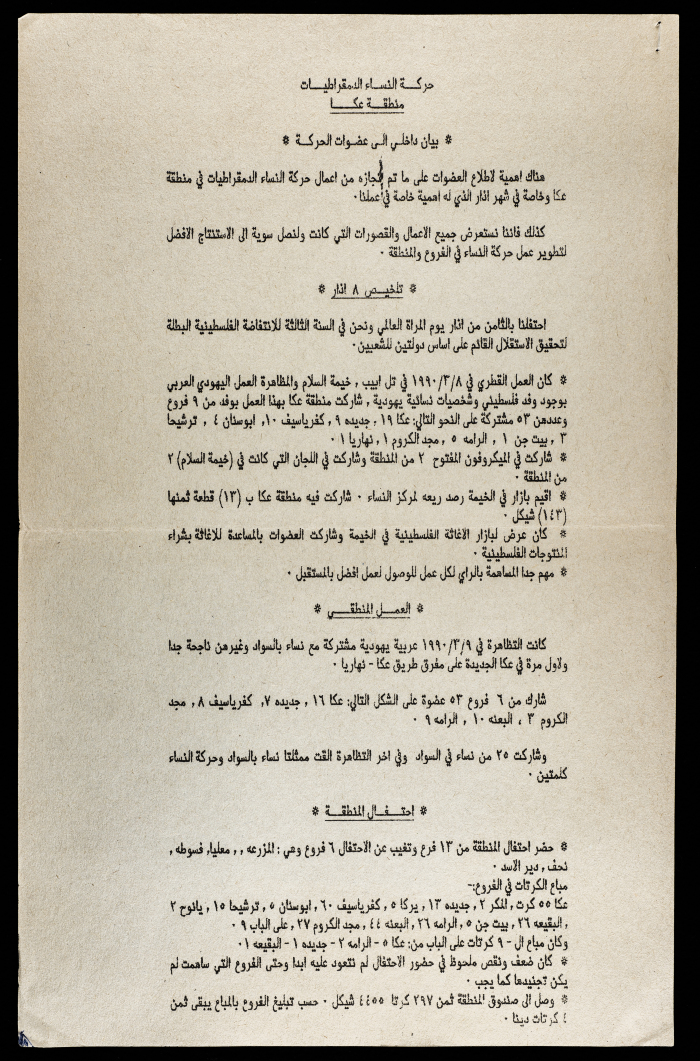 حركة النساء الدمقراطيات
منطقة عكا
* بيان داخلي الى عضوات الحركة *
هناك اهمية لاطلاع العضوات على ما تم انجازه من اعمال حركة النساء الدمقراطيات في منطقة
عكا وخاصة في شهر اذار الذي له اهمية خاصة في اعملنا٠
كذلك فاننا نستعرض جميع الاعمال والقصورات التي كانت ولنصل سوية الى الاستنتاج الافضل
لتطوير عمل حركة النساء في الفروع والمنطقة ٠
* تلخيص ٨ اذار *
احتفلنا بالثامن من اذار يوم المراة العالمي ونحن في السنة الثالثة للانتفاضة الفلسطينية البطلة
لتحقيق الاستقلال القائم على اساس دولتين للشعبين٠
* كان العمل القطري في ١٩٩٠/٣/٨ في تل ابيب , خيمة السلام والمظاهرة العمل اليهودي العربي
بوجود وفد فلسطيني وشخصيات نسائية يهودية , شاركت منطقة عكا بهذا العمل بوفد من ٩ فروع
وعددهن ٥٣ مشتركة على النحو التالي: عكا ١٩, جديده ٩, كفرياسيف ١٠, ابوسنان ٤ , ترشيحا
٣ , بيت جن ١ , الرامه ٥ , مجد الكروم ١, نهاريا ١ ٠
* شاركت في الميكروفون المفتوح ٢ من المنطقة وشاركت في اللجان التي كانت في (خيمة السلام) ٢
من المنطقة ٠
* اقيم بازار في الخيمة رصد ريعه لمركز النساء ٠ شاركت فيه منطقة عكا ب (١٣) قطعة ثمنها
(١٤٣) شيكل ٠
* كان عرض لبازار الاغاثة الفلسطينية في الخيمة وشاركت العضوات بالمساعدة للاغاثة بشراء
المنتوجات الفلسطينية ٠
* مهم جدا المساهمة بالراي لكل عمل للوصول لعمل افضل بالمستقبل ٠
* العمل المنطقي *
كانت التظاهرة في ١٩٩٠/٣/٩ عربية يهودية مشتركة مع نساء بالسواد وغيرهن ناجحة جدا
ولاول مرة في عكا الجديدة على مفرق طريق عكا - نهاريا ٠
شارك من ٦ فروع ٥٣ عضوة على الشكل التالي: عكا ١٦ , جديده ٧, كفرياسيف ٨, مجد
الكروم ٣ , البعنه ١٠ , الرامه ٩ ٠
وشاركت ٢٥ من نساء في السواد وفي اخر التظاهرة القت ممثلتا نساء بالسواد وحركة النساء
كلمتين ٠
* احتفال المنطقة *
* حضر احتفال المنطقة من ١٣ فرع وتغيب عن الاحتفال ٦ فروع وهي : المزرعه , , معليا, فسوطه ,
نحف , دير الاسد ٠
مباع الكرتات في الفروع:-
عكا ٥٥ كرت , المكر ٢ , جديده ١٣, يركا ٥ , كفرياسيف ٦٠, ابوسنان ٥ , ترشيحا ١٥, يانوح ٢
, البقيعه ٢٦, بيت جن ٥ , الرامه ٢٦, البعنه ٤٤ , مجد الكروم ٢٧, على الباب ٩ ٠
وكان مباع ال - ٩ كرتات على الباب من: عكا ٥ - الرامه ٢ - جديده ١ - البقيعه ١٠
* كان ضعف ونقص ملحوظ في حضور الاحتفال لم نتعود عليه ابدا وحتى الفروع التي ساهمت لم
يكن تجنيدها كما يجب ٠
* وصل الى صندوق المنطقة ثمن ٢٩٧ كرتا ٤٤٥٥ شيكل ٠ حسب تبليغ الفروع بالمباع يبقى ثمن
٤ كرتات دينا ٠